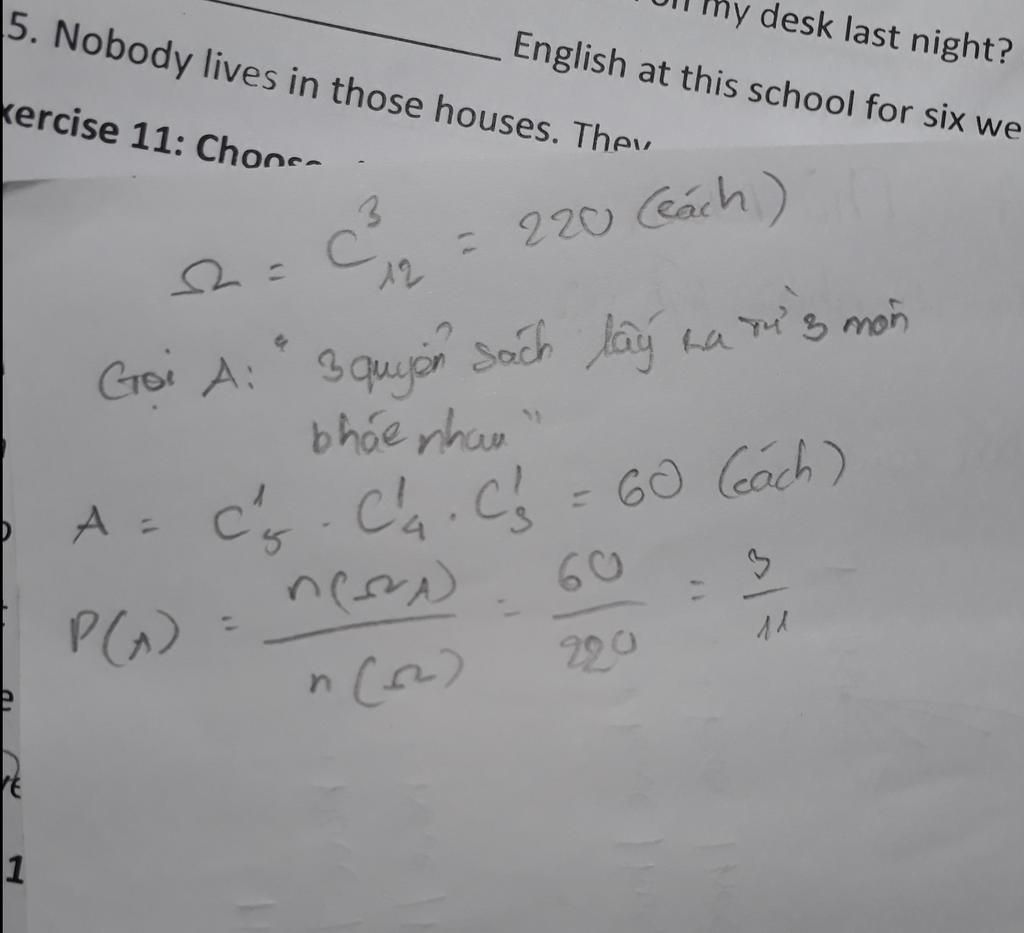 on my desk last night?
English at this school for six we
5. Nobody lives in those houses. They
xercise 11: Choose
Ω = C³₁₂ = 220 (cách)
Gọi A: "3 quyển sách lấy ra từ 3 môn
khác nhau"
A = C¹₅ . C¹₄ . C¹₃ = 60 (cách)
P(A) = n(ΩA) / n(Ω) = 60/220 = 3/11
1